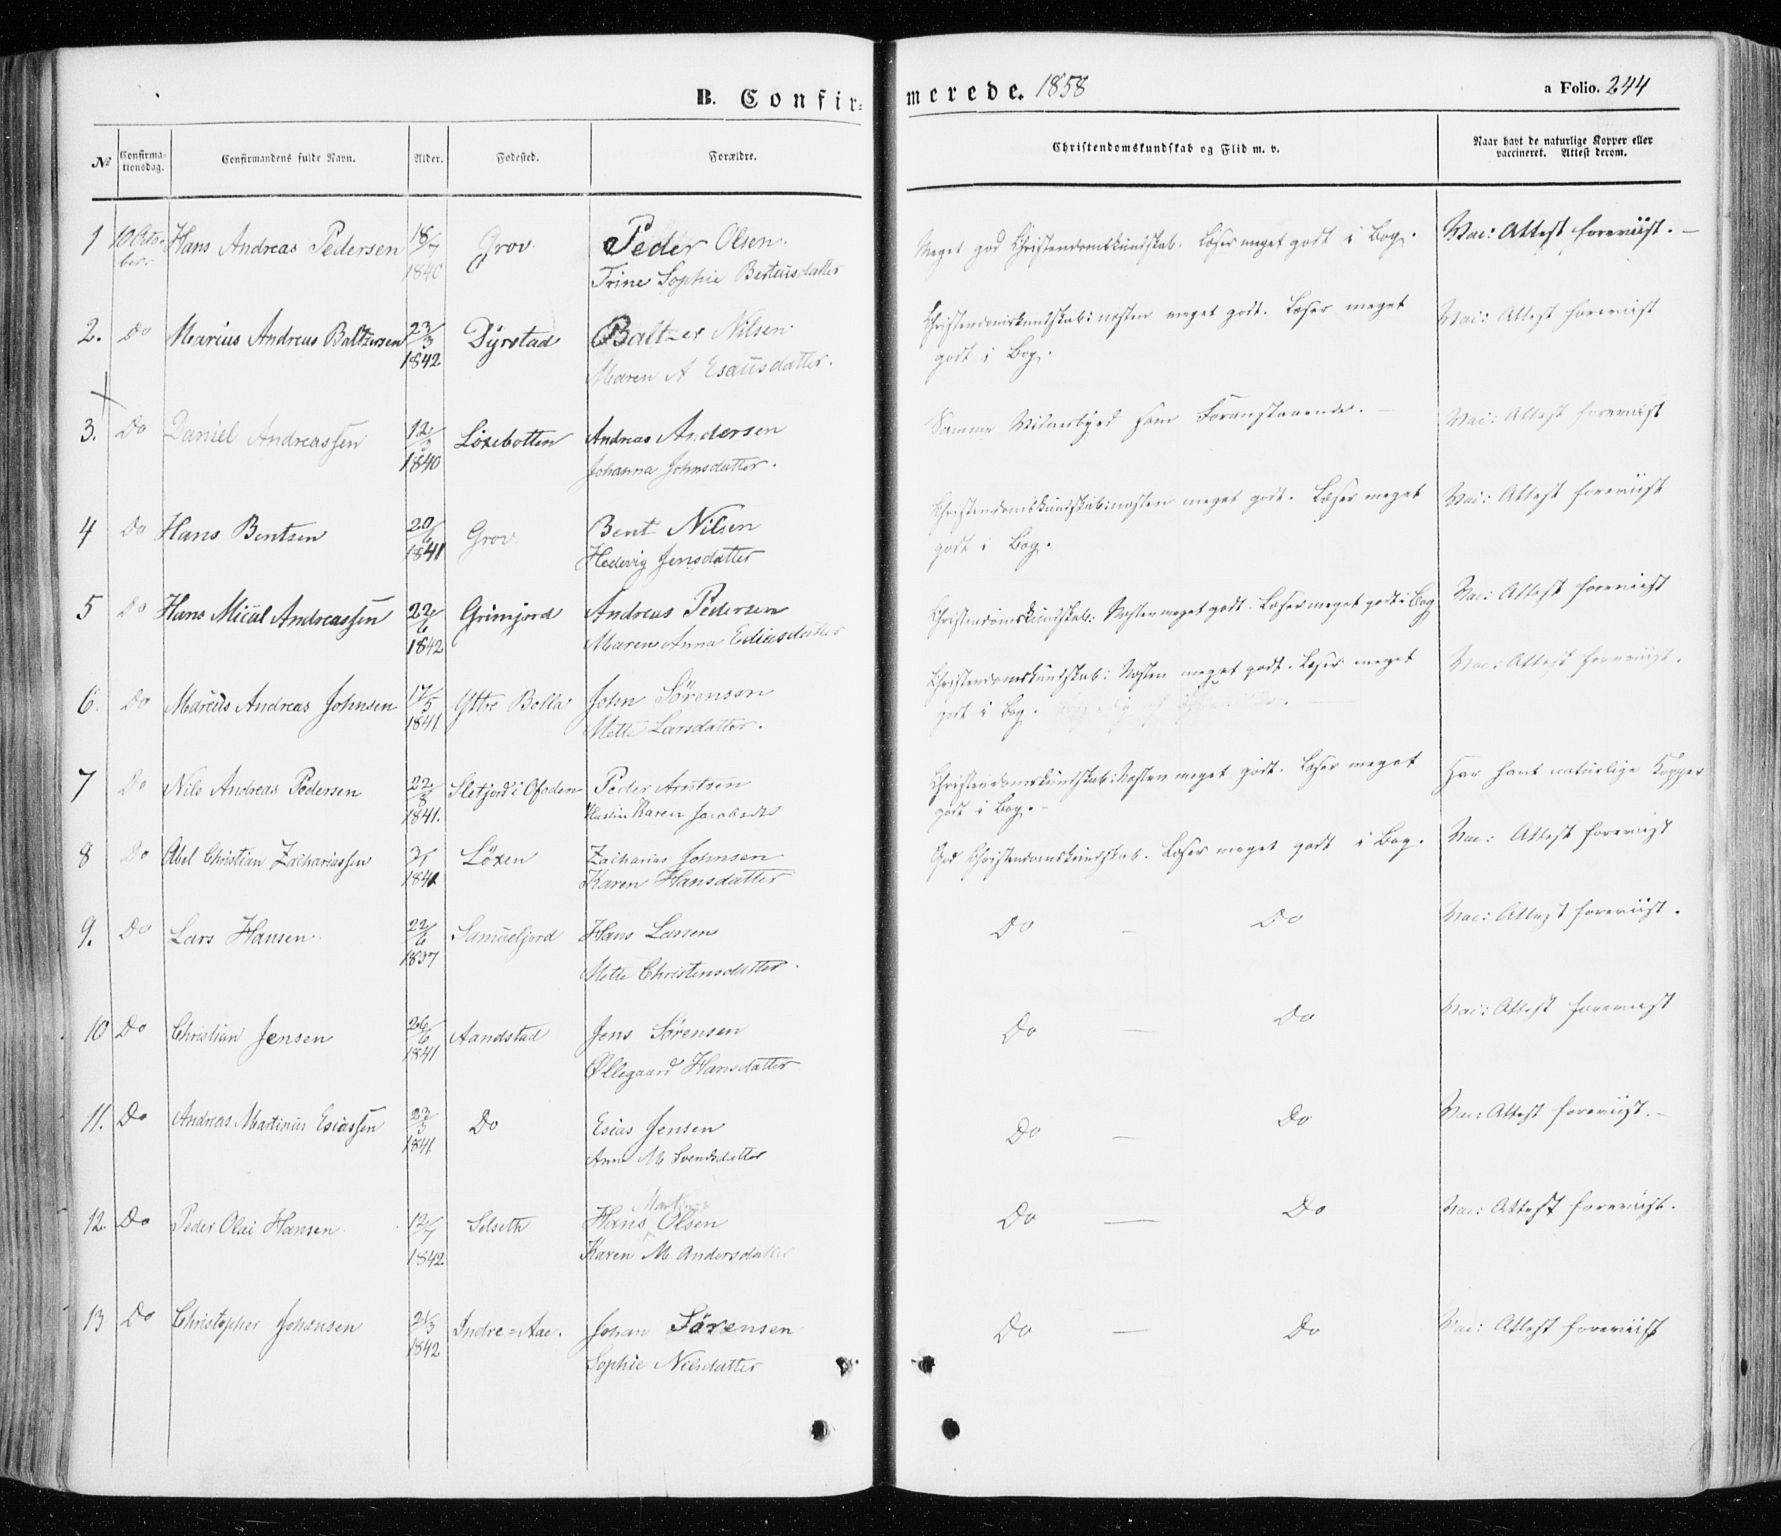 B. Confir=
merede. 1858
a Folio. 244
No
Confirma-
tionsdag.
Confirmandens fulde Navn.
Alder.
Fødested.
Forældre.
Christendomskundskab og Flid m. v.
Naar havt de naturlige Kopper eller
vaccineret. Attest derom.
1 10 Octo- Hans Andreas Pedersen 18/7 Grov. Peder Olsen. Meget god Christendomskundskab. Læser meget godt i Bog. Vac: Attest foreviist. –
ber: 1840 Trine Sophie Berteusdatter
2. Do Marius Andreas Baltzersen 23/3 Dyrstad Baltzer Nilsen Christendomskundskab: næsten meget godt. Læser meget Vac: Attest foreviist
1842 Maren A Esausdatter. godt i Bog.
3. Do Daniel Andreassen 12/3 Löxebotten Andreas Andersen Samme Vidnesbyrd som Foranstaaende. – Vac: Attest foreviist
1840 Johanna Johnsdatter.
4 Do Hans Bentsen 20/6 Grov. Bent Nilsen Christendomskundskab: næsten meget godt. Læser meget Vac: Attest foreviist
1841 Hedevig Jensdatter godt i Bog.
5 Do Hans Mical Andreassen 22/6 Grimjord Andreas Pedersen Christendomskundskab: Næsten meget godt. Læser meget godt i Bog Vac: Attest foreviist
1842 Maren Anna Ediasdatter
6. Do Marius Andreas Johnsen 17/5 Yttre Bolla John Sörensen Christendomskundskab: Næsten meget godt. Læser meget Vac: Attest foreviist.
1841 Mette Larsdatter. godt i Bog.
7 Do Nils Andreas Pedersen 22/8 Sletjord i Ofoden Peder Arntsen Christendomskundskab: Næsten meget godt. Læser meget Har havt naturlige Kopper
1841. Karen Jacobsdt godt i Bog. –
8 Do Abel Christian Zachariassen Löxen Zacharias Johnsen God Christendomskundskab. Læser meget godt i Bog. Vac: Attest foreviist
1841 Karen Hansdatter
9. Do Lars Hansen 22/6 Samueljord Hans Larsen Do – Do Vac: Attest foreviist.
1837 Mette Christensdatter.
10 Do Christian Jensen 26/6 Aandstad Jens Sörensen Do — Do Vac: Attest foreviist
1841 Øllegaard Hansdatter
11. Do Andreas Martinus Esiassen 23/3 Do Esias Jensen Do — Do Vac: Attest foreviist. –
1841. Anne M Svendsdatter
Martinus
12. Do Peder Olai Hansen. 12/7 Selseth Hans Olsen Do — Do Vac: Attest foreviist.
1842 Karen M Andersdatter
13 Do Christopher Johansen 21/3 Indre=Aae. Johan Sörensen Do — Do Vac: Attest foreviist
1842 Sophie Nilsdatter